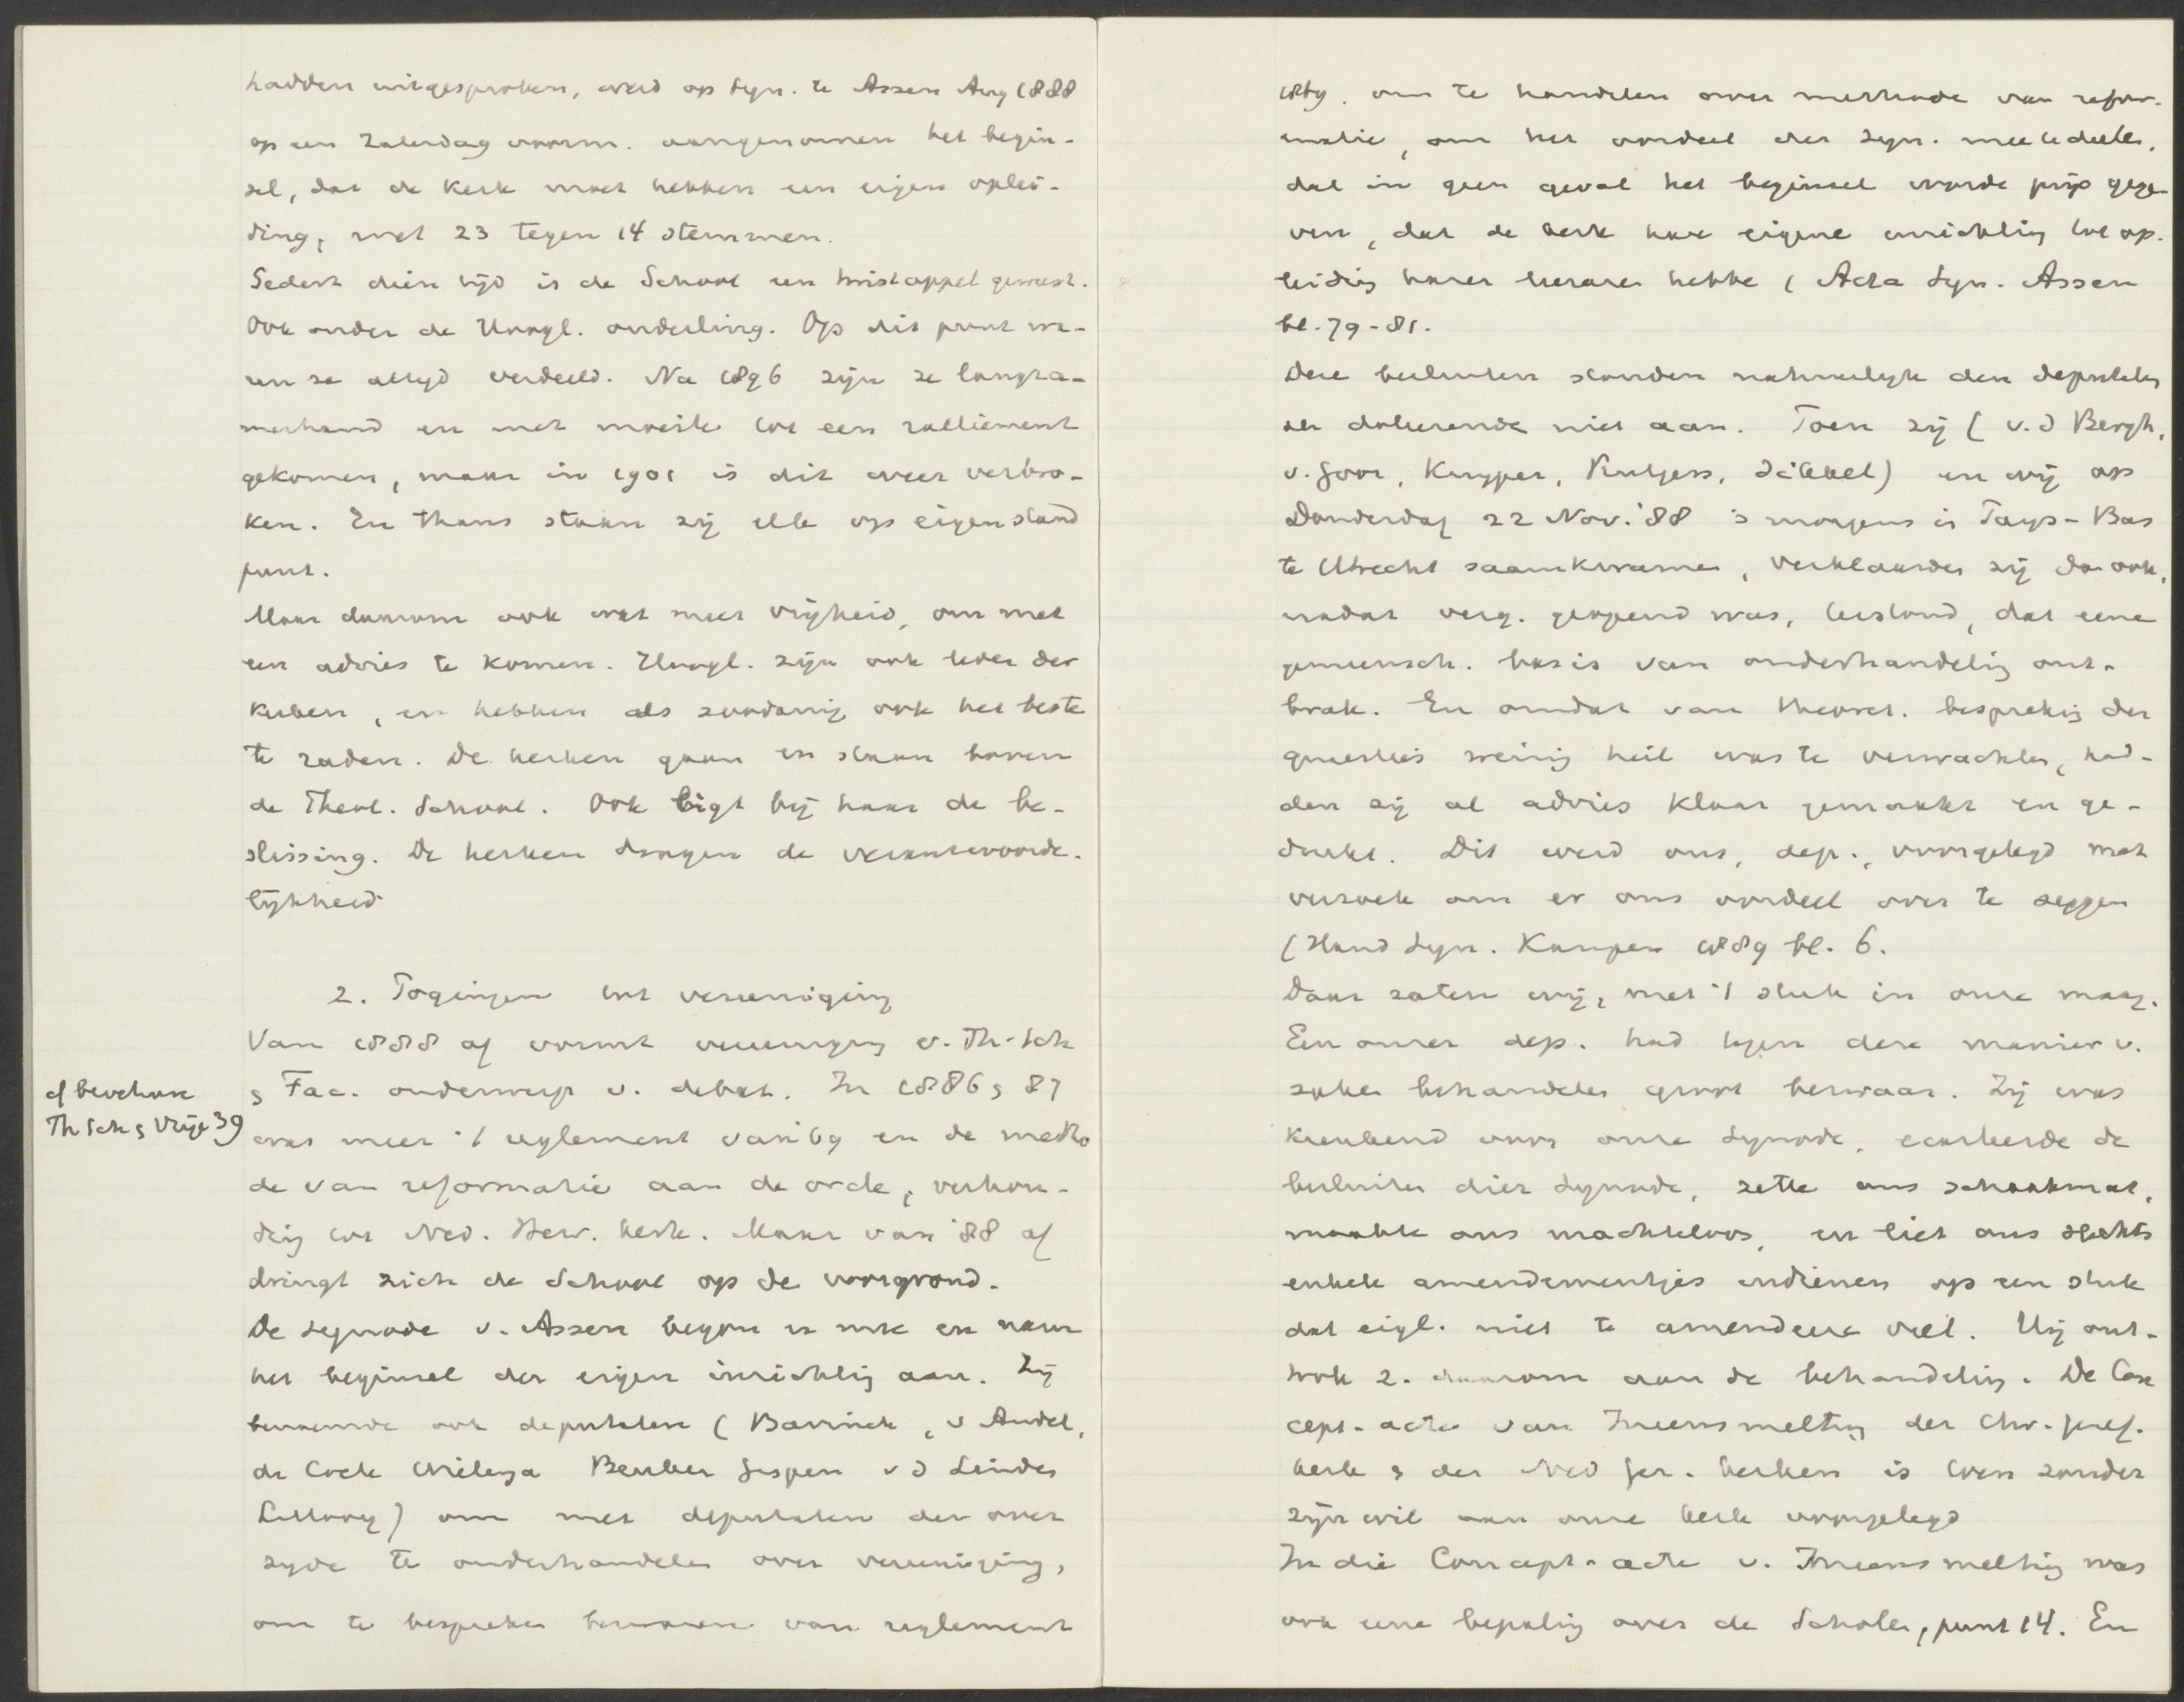 hadden uitgesproken, werd op Syn. te Assen Aug 1888
op een Zaterdag voorm. aangenomen het begin-
sel, dat de Kerk moet hebben een eigen oplei-
ding, met 23 tegen 14 stemmen.
Sedert dien tijd is de School een twistappel geweest.
Ook onder de Hoogl. onderling. Op dit punt wa-
ren ze altyd verdeeld. Na 1896 zijn ze langza-
merhand en met moeite tot een ralliement
gekomen, maar in 1901 is dit weer verbro-
ken. En thans staan zij elk op eigen stand
punt.
Maar daarom ook wat meer vrijheid, om met
een advies te komen. Hoogl. zijn ook leden der
Kerken, en hebben als zoodanig ook het beste
te raden. De kerken gaan en staan boven
de Theol. School. Ook ligt bij haar de be-
slissing. De kerken dragen de verantwoorde-
lijkheid

2. Pogingen tot vereeniging
Van 1888 af vormt vereeniging v. Th. Sch
& Fac. onderwerp v. debat. In 1886 & 87
cf brochure
Th Sch & Vrije 39
was meer 't reglement van '69 en de metho
de van reformatie aan de orde, verhou-
ding tot Ned. Herv. kerk. Maar van '88 af
dringt zich de School op de voorgrond.
De Synode v. Assen begon er mee en nam
het beginsel der eigen inrichting aan. Zij
benoemde ook deputaten (Bavinck, v Andel,
de Cock Wielenga Beuker Gispen v d Linden
Littooy) om met deputaten der over
zyde te onderhandelen over vereeniging,
om te bespreken bezwaren van reglement
1869. om te handelen over methode van refor-
matie, om het oordeel der Syn. mee te deelen,
dat in geen geval het beginsel worde prijs gege-
ven, dat de kerk hare eigene inrichting tot op-
leiding harer leeraren hebbe (Acta Syn. Assen
bl. 79-81.
Deze besluiten stonden natuurlijk den deputaten
der doleerende niet aan. Toen zij (v. d Bergh,
v. Goor, Kuyper, Rutgers, Sikkel) en wij op
Donderdag 22 Nov. '88 's morgens in Pays-Bas
te Utrecht saamkwamen, verklaarden zij dan ook,
nadat verg. geopend was, terstond, dat eene
gemeensch. basis van onderhandeling ont-
brak. En omdat van theoret. bespreking der
quaesties weinig heil was te verwachten, had-
den zij al advies klaar gemaakt en ge-
drukt. Dit werd ons, dep., voorgelegd met
verzoek om er ons oordeel over te zeggen
(Hand Syn. Kampen 1889 bl. 6.
Daar zaten wij, met 't stuk in onze maag.
Een onzer dep. had tegen deze manier v.
zaken behandelen groot bezwaar. Zij was
krenkend voor onze Synode, ecarteerde de
besluiten dier Synode, zette ons schaakmat,
maakte ons machteloos, en liet ons slechts
enkele amendementjes indienen op een stuk
dat eigl. niet te amendeeren viel. Hij ont-
trok z. daarom aan de behandeling. De Con
cept-acte van Ineensmelting der Chr. Geref.
kerk & der Ned Ger. kerken is toen zonder
zijn wil aan onze kerk voorgelegd
In die Concept-acte v. Ineensmelting was
ook eene bepaling over de Scholen, punt 14. En